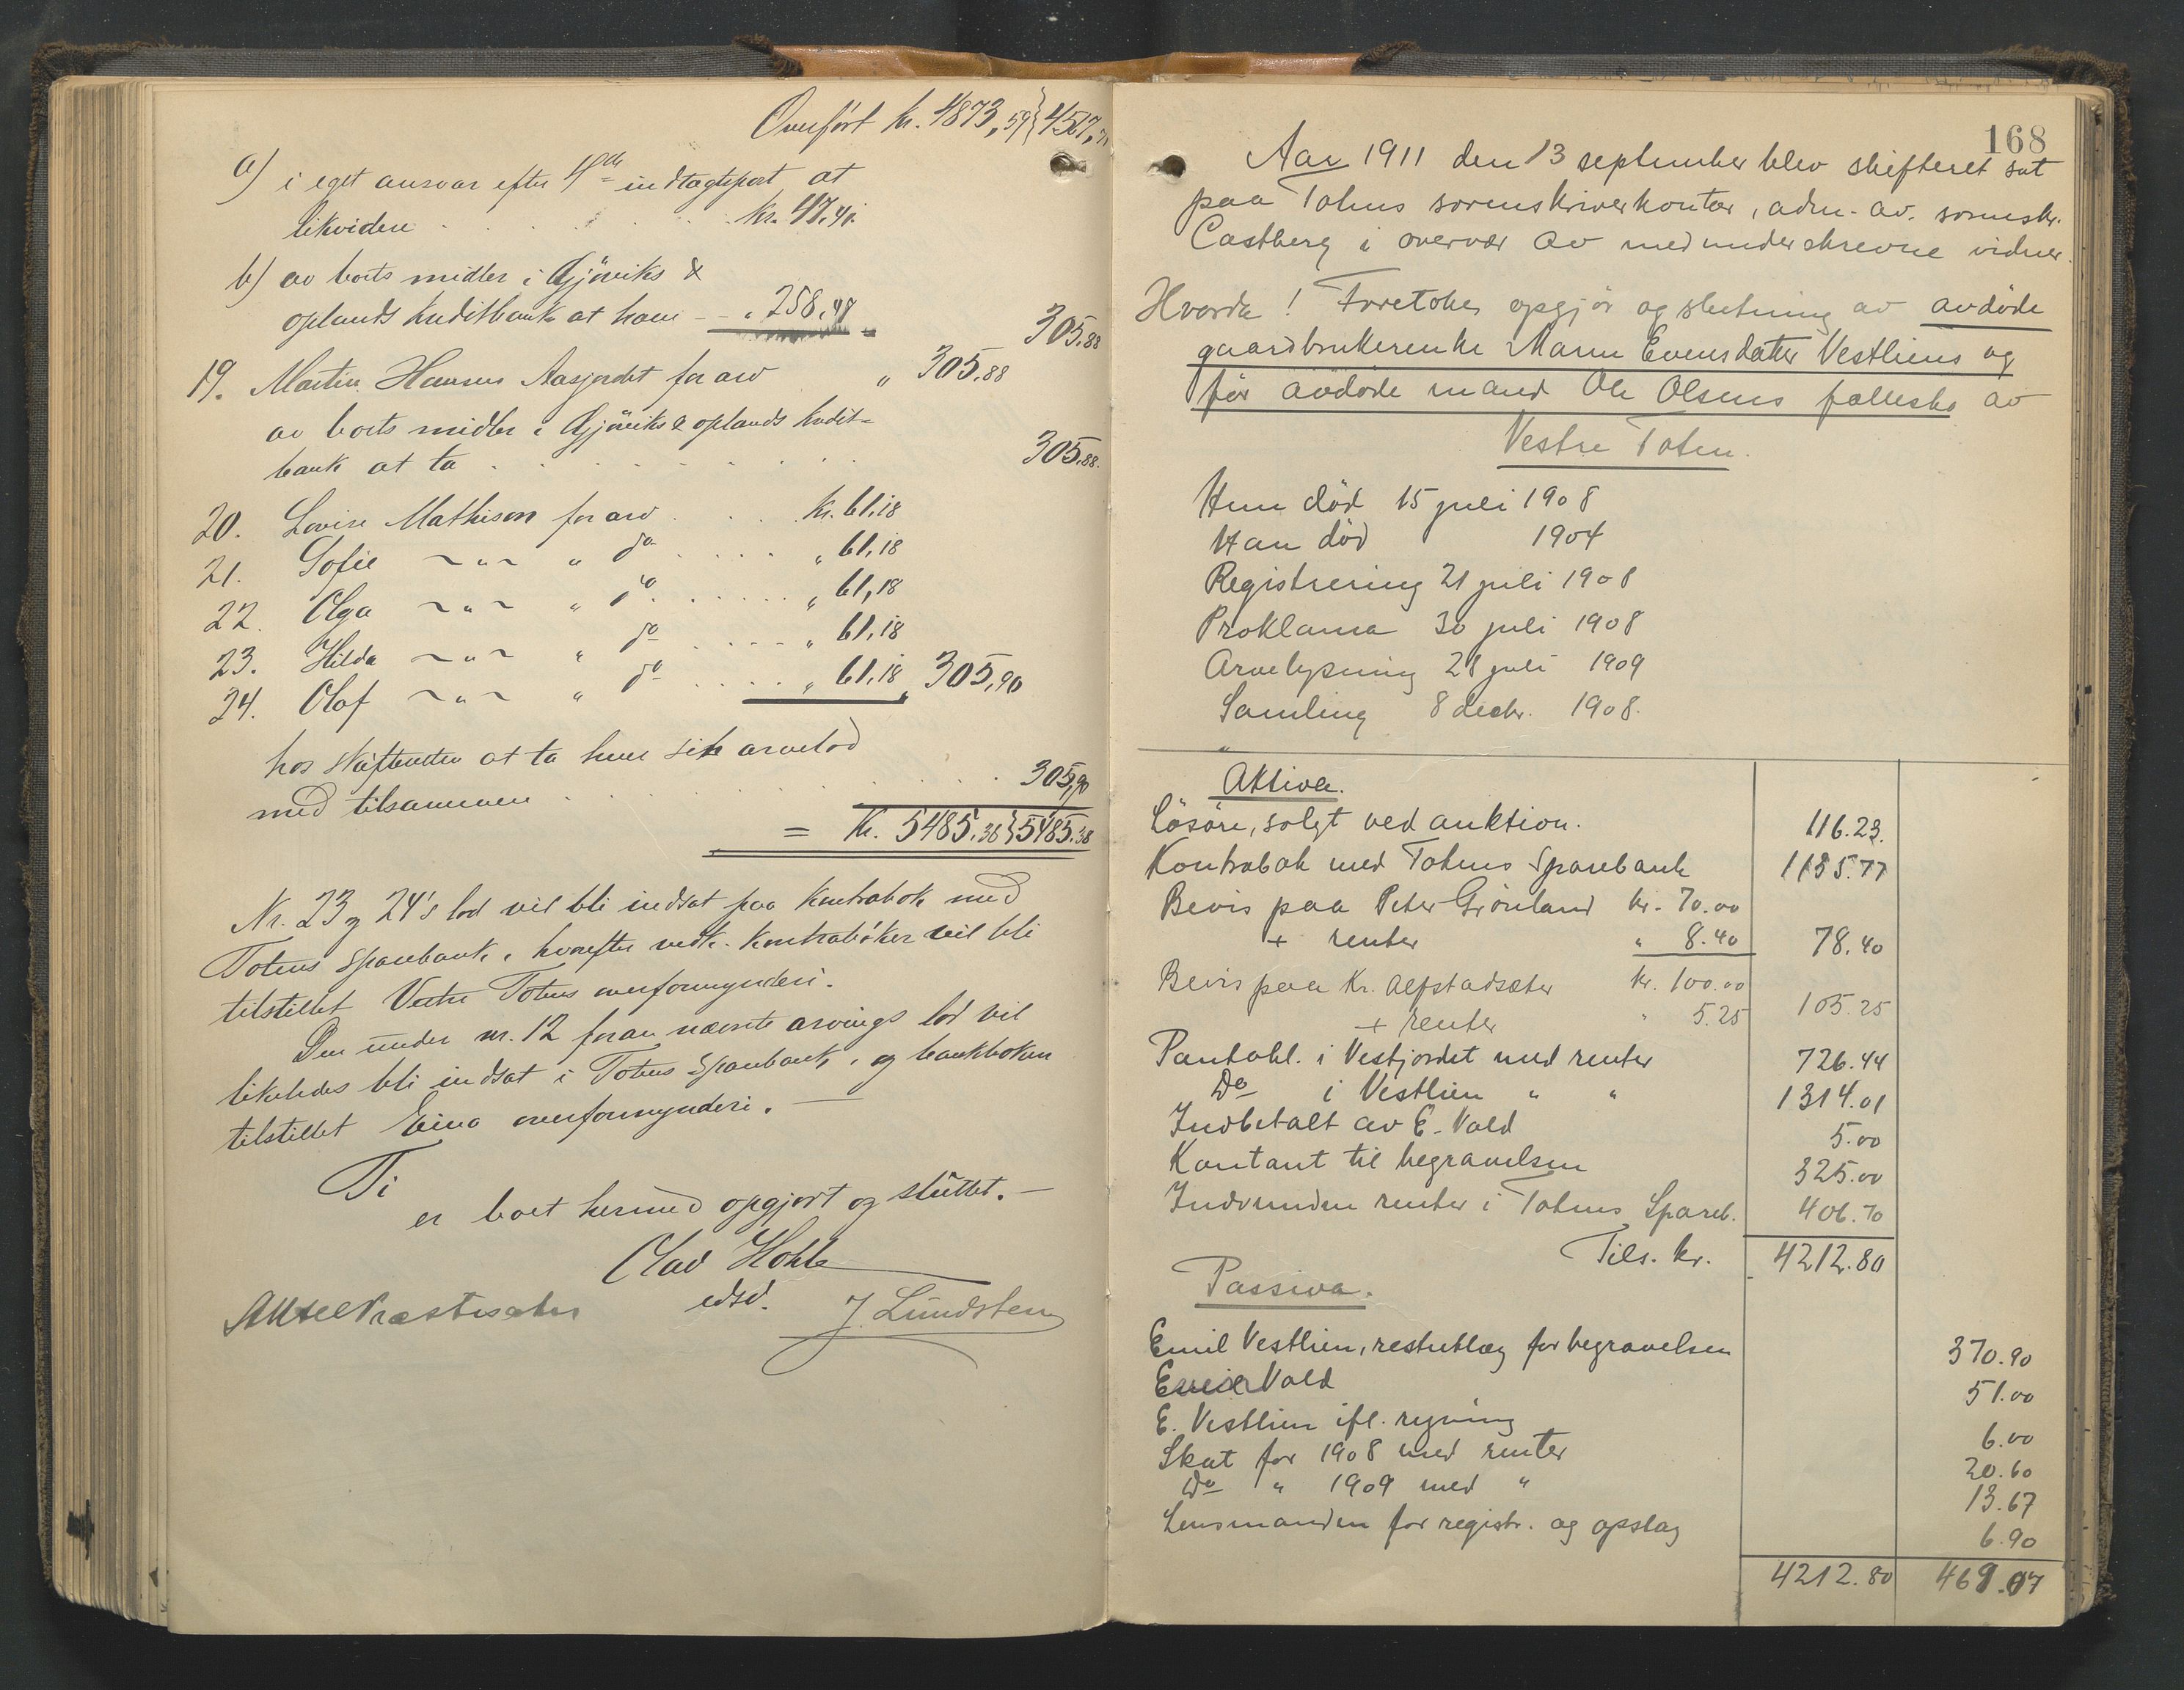 Overført kr. 4873,59 } 4567,
a) i eget ansvar efter 4de indtægtspost at
likvidere . . . . . . kr. 47,40
b) av boets midler i Gjöviks &
oplands kreditbank at have — „ 258,48 = 305,88
19. Martin Hansen Aasjordet for arv „ 305,88
av boets midler i Gjöviks & oplands kredit-
bank at ta . . . . . . . . 305,88.
20. Lovise Mathisen for arv . . . kr. 61,18
21. Sofie ~„~ „ do . . . . „ 61,18
22. Olga ~„~ „ do . . . . . „ 61,18
23. Hilda ~„~ „ do . . . . „ 61,18
24. Olaf ~„~ „ do . . . . . „ 61,18 „ 305,90
hos skifteretten at ta hver sin arvelod
med tilsammen . . . . . . . . . 305,90
= Kr. 5485,38 } 5485,38
Nr. 23 og 24's lod vil bli indsat paa kontrabok med
Totens Sparebank, hvorefter vedk. kontrabøker vil bli
tilstillet Vestre Totens overformynderi.
Den under nr. 12 foran nævnte arvings lod vil
likeledes bli indsat i Totens Sparebank, og bankboken
tilstillet Eina overformynderi. —
Ti
er boet hermed opgjort og sluttet. —
Olav Hohle
edsv.
Aksel Præstesæter J. Lundsten
168
Aar 1911 den 13 september blev skifteret sat
paa Totens sorenskriverkontor, adm. av. sorenskr.
Castberg i overvær av medunderskrevne vidner.
Hvorda! Foretokes opgjör og slutning av avdöde
gaardbrukerenke Maren Evensdatter Vestliens og
för avdöde mand Ole Olsens fællesbo av
Vestre Toten.
Hun död 15 juli 1908
Han död 1904
Registrering 21 juli 1908
Proklama 30 juli 1908
Arvelysning 28 juli 1909
Samling 8 decbr. 1908.
Aktiva.
Lösöre, solgt ved auktion. 116.23.
Kontrabok med Totens Sparebank 1135.77
Bevis paa Peter Grönland kr. 70.00
+ renter „ 8.40 78.40
Bevis paa Kr. Alfstadsæter kr. 100.00
+ renter „ 5.25 105.25
Pantobl. i Vestjordet med renter 726.44
Do i Vestlien „ „ 1314.01
Indbetalt av E. Vold 5.00
Kontant til begravelsen 325.00
Indvunden renter i Totens Spareb. 406.70
Tils. kr. 4212.80
Passiva.
Emil Vestlien, restutlæg for begravelsen 370.90
Vold 51.00
E. Vestlien ifl. regning 6.00
Skat for 1908 med renter 20.60
Do „ 1909 med „ 13.67
Lensmanden for registr. og opslag 6.90
4212.80 469.07